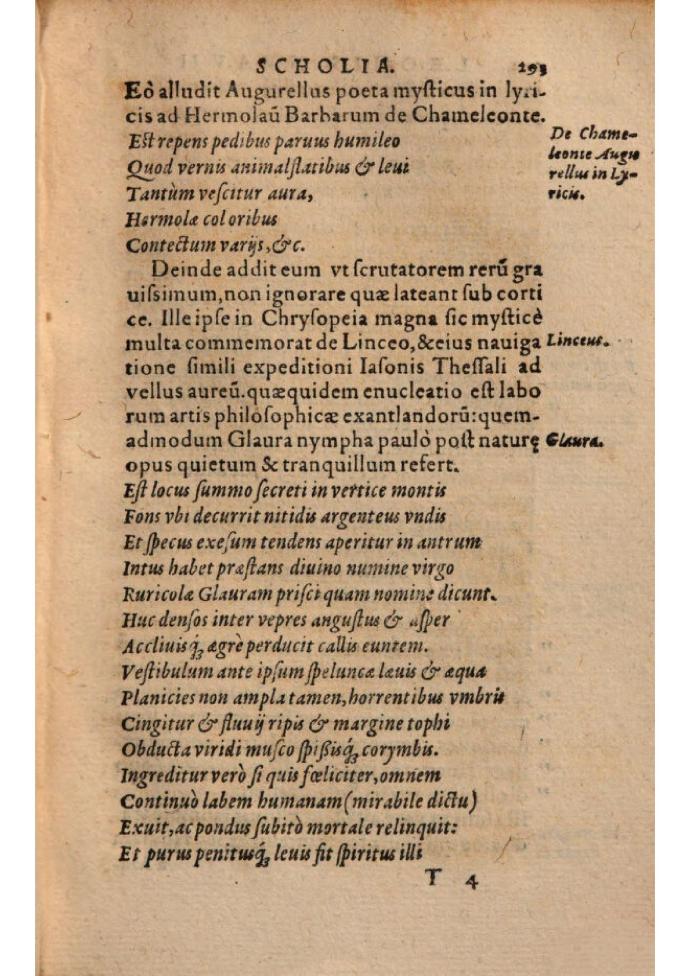 SCHOLIA. 293
Eò alludit Augurellus poeta mysticus in lyri-
cis ad Hermolaū Barbarum de Chameleonte.
Est repens pedibus paruus humi leo
Quod vernis animal flatibus & leui
Tantùm vescitur aura,
Hermolæ coloribus
Contectum varijs, &c.
De Chame-
leonte Augu
rellus in Ly-
ricis.
Deinde addit eum vt scrutatorem rerū gra
uissimum, non ignorare quæ lateant sub corti
ce. Ille ipse in Chrysopeia magna sic mysticè
multa commemorat de Linceo, & eius nauiga
Linceus.
tione simili expeditioni Iasonis Thessali ad
vellus aureū. quæquidem enucleatio est labo
rum artis philosophicæ exantlandorū: quem-
admodum Glaura nympha paulò post naturę
Glaura.
opus quietum & tranquillum refert.
Est locus summo secreti in vertice montis
Fons vbi decurrit nitidis argenteus vndis
Et specus exesum tendens aperitur in antrum
Intus habet præstans diuino numine virgo
Ruricolæ Glauram prisci quam nomine dicunt.
Huc densos inter vepres angustus & asper
Accliuisq; ægrè perducit callis euntem.
Vestibulum ante ipsum speluncæ læuis & æqua
Planicies non ampla tamen, horrentibus vmbris
Cingitur & fluuij ripis & margine tophi
Obducta viridi musco spißisq; corymbis.
Ingreditur verò si quis fœliciter, omnem
Continuò labem humanam (mirabile dictu)
Exuit, ac pondus subitò mortale relinquit:
Et purus penitusq; leuis fit spiritus illi
T 4